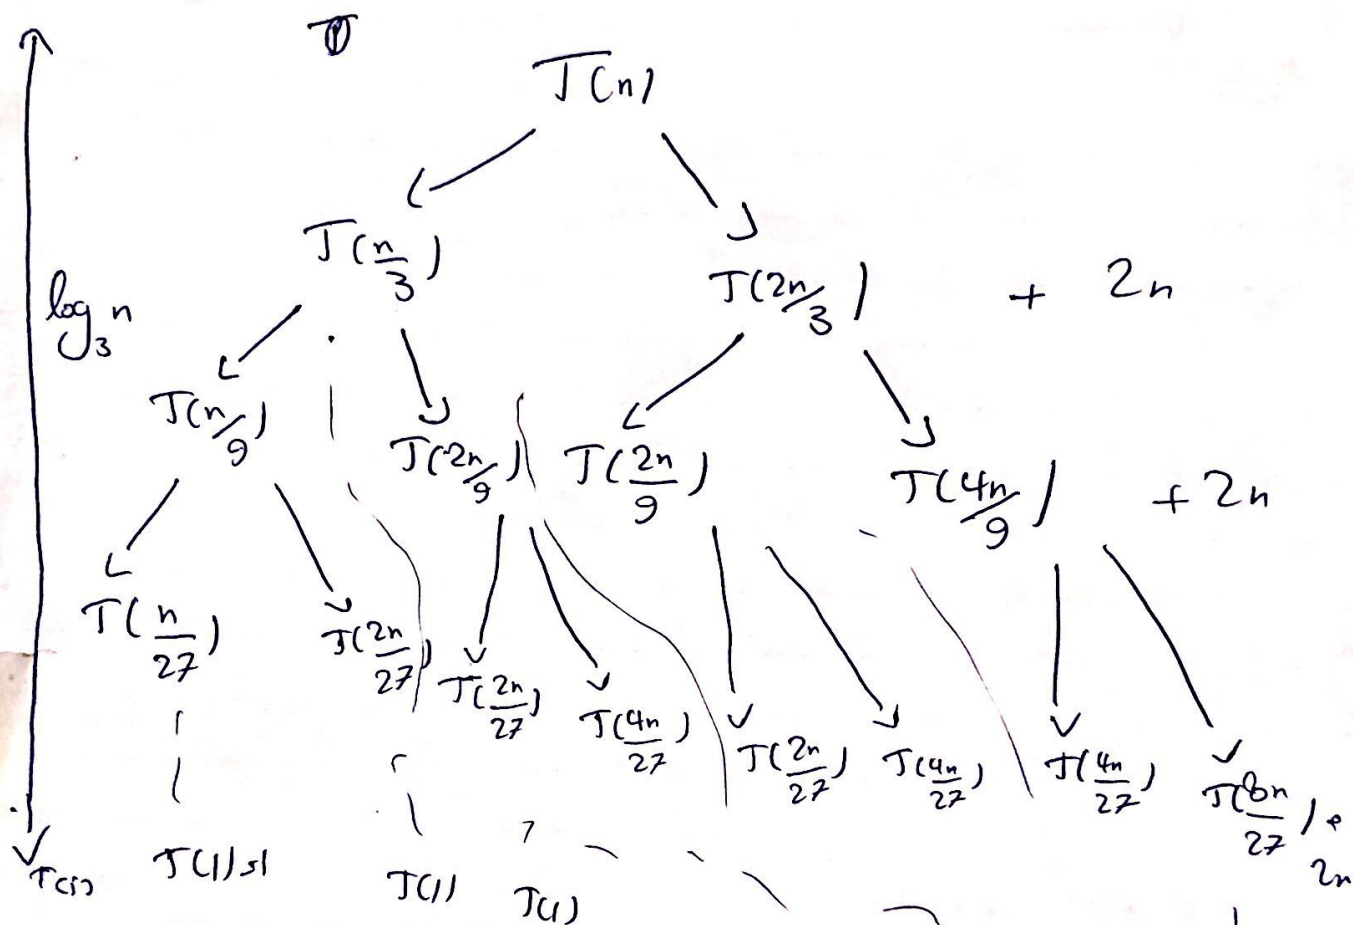 T(n)
T(n/3) T(2n/3) + 2n
log₃n
T(n/9) T(2n/9) T(2n/9) T(4n/9) + 2n
T(n/27) T(2n/27) T(2n/27) T(4n/27) T(2n/27) T(4n/27) T(4n/27) T(8n/27)
2n
T(1) T(1) T(1)